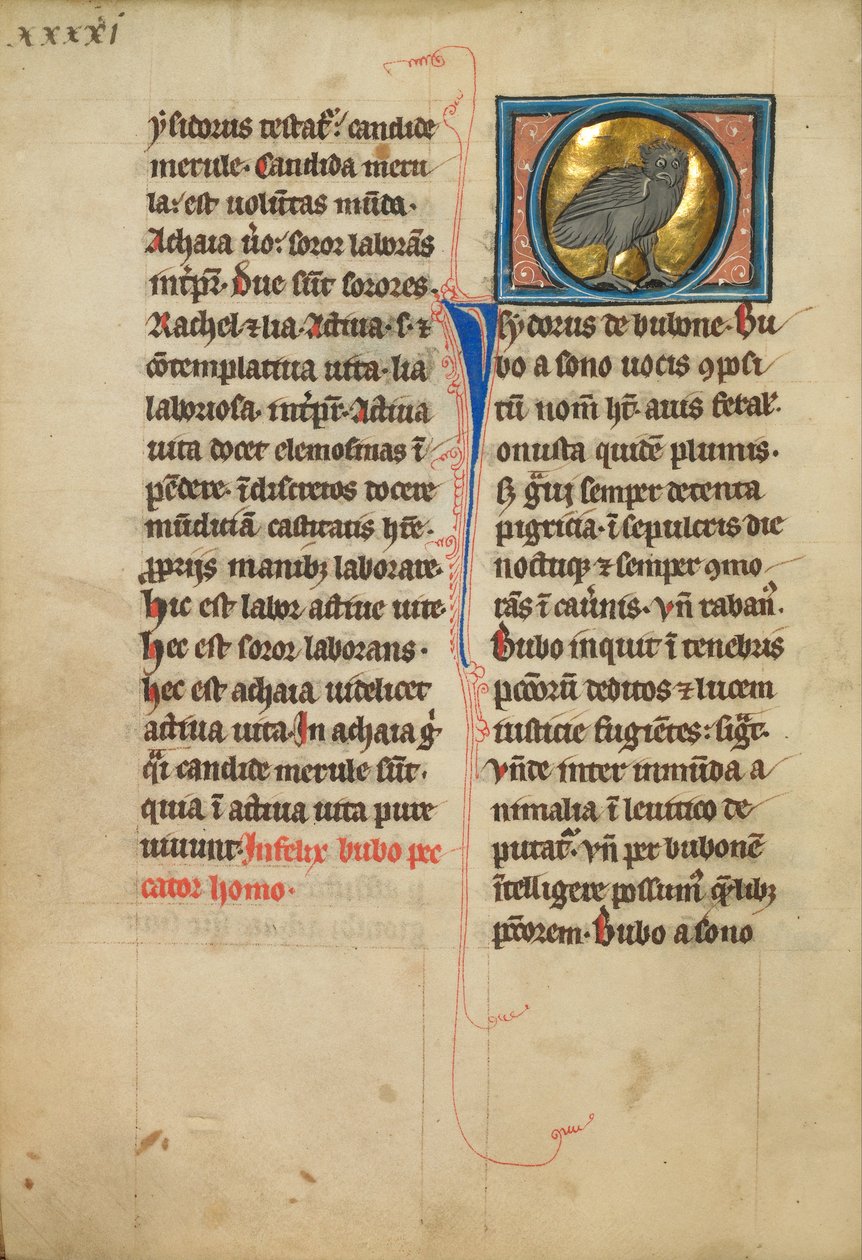 xxxxi
ysidorus testat᷒: candide
merule. Candida meru
la: est uolūtas mūda.
Achaia ůo: soror laborās
int̉pr̄. Due sūt sorores.
Rachel ⁊ lia. Actiua .s. ⁊
cōtemplatiua uita. lia
laboriosa. int̉pr̄. Actiua
uita docet elemosinas ī
pēdere. īdiscretos docere
mūdiciā castitatis hr̄e.
ꝓprijs manibꝫ laborare.
Hic est labor actiue uite.
Hec est soror laborans.
Hec est achaia uidelicet
actiua uita. In achaia gͥ
qͣi candide merule sūt.
quia ī actiua uita pure
uiuunt. Infelix bubo pec
cator homo.
Ysydorus de bubone. Bu
bo a sono uocis ꝯposi
tū nom̄ hꝫ. auis feral᷒.
onusta quidē plumis.
sꝫ gͣui semper detenta
pigricia. ī sepulcris die
noctuqꝫ ⁊ semper ꝯmo
rās ī cau̓nis. Vn̄ raban᷒.
Bubo inquit ī tenebris
pctōrū deditos ⁊ lucem
iusticie fugiētes: sigͣt.
Vn̄de inter inmūda a
nimalia ī leuitico de
putat᷒. Vn̄ per bubonē
ītelligere possum᷒ qēlibꝫ
pctōrem. Bubo a sono